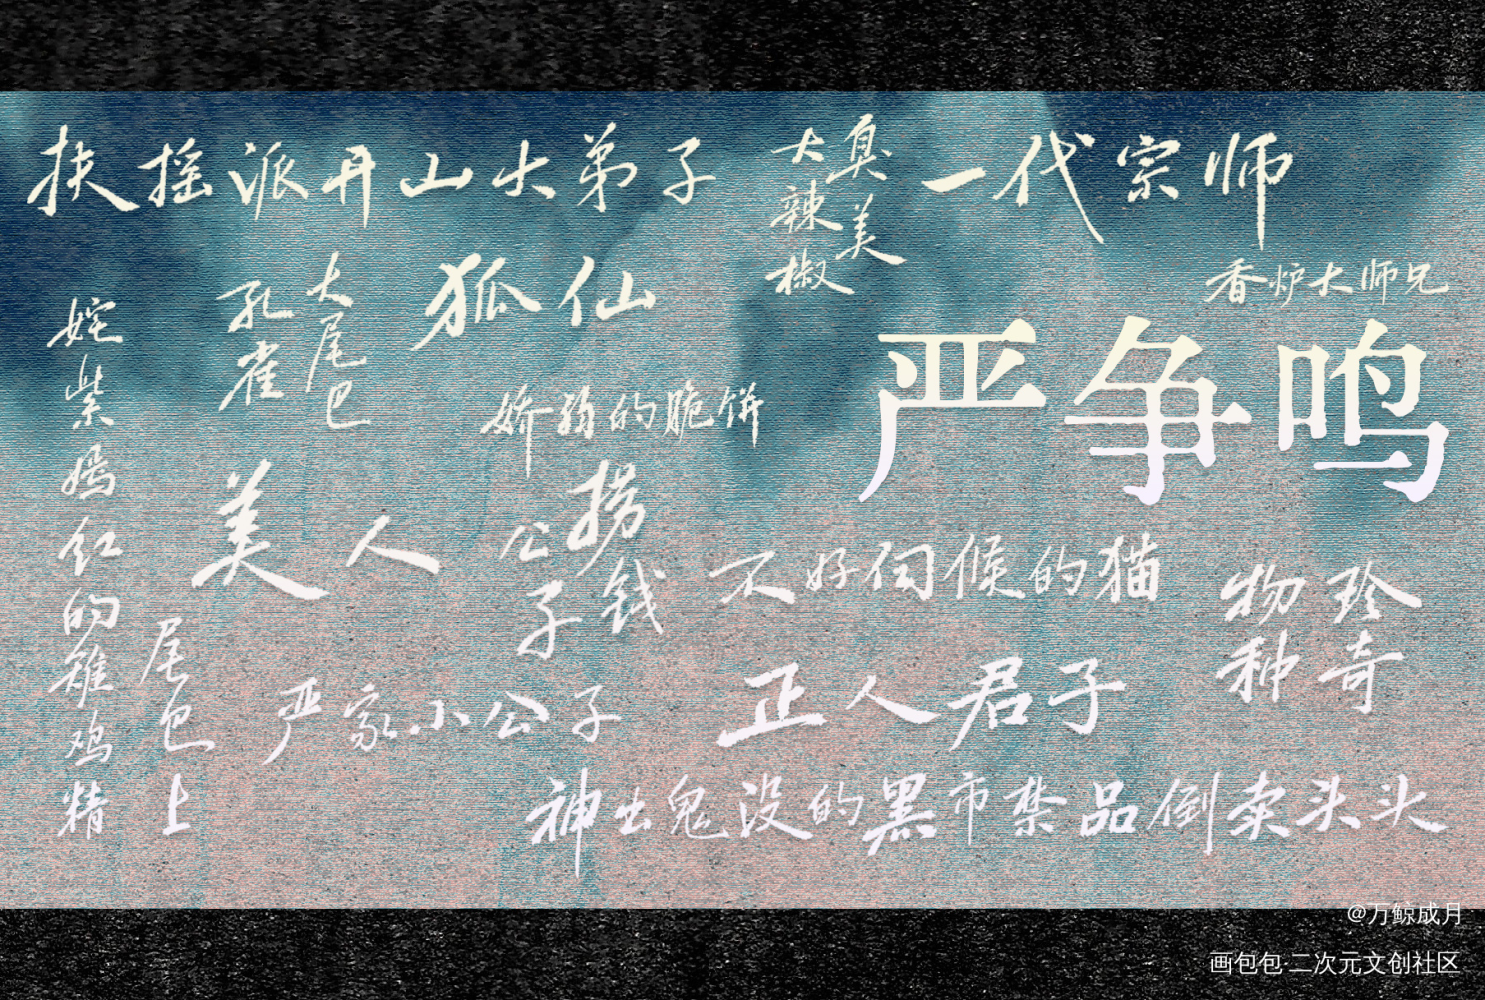 扶摇派开山大弟子
大辣椒
真美
一代宗师
香炉大师兄
严争鸣
孔雀
大尾巴
狐仙
姹紫嫣红的雉鸡精
尾巴上
娇弱的脆饼
美人
公子
捞钱
不好伺候的猫
物种
珍奇
严家小公子
正人君子
神出鬼没的黑市禁品倒卖头头
@万鲸成月
画包包·二次元文创社区